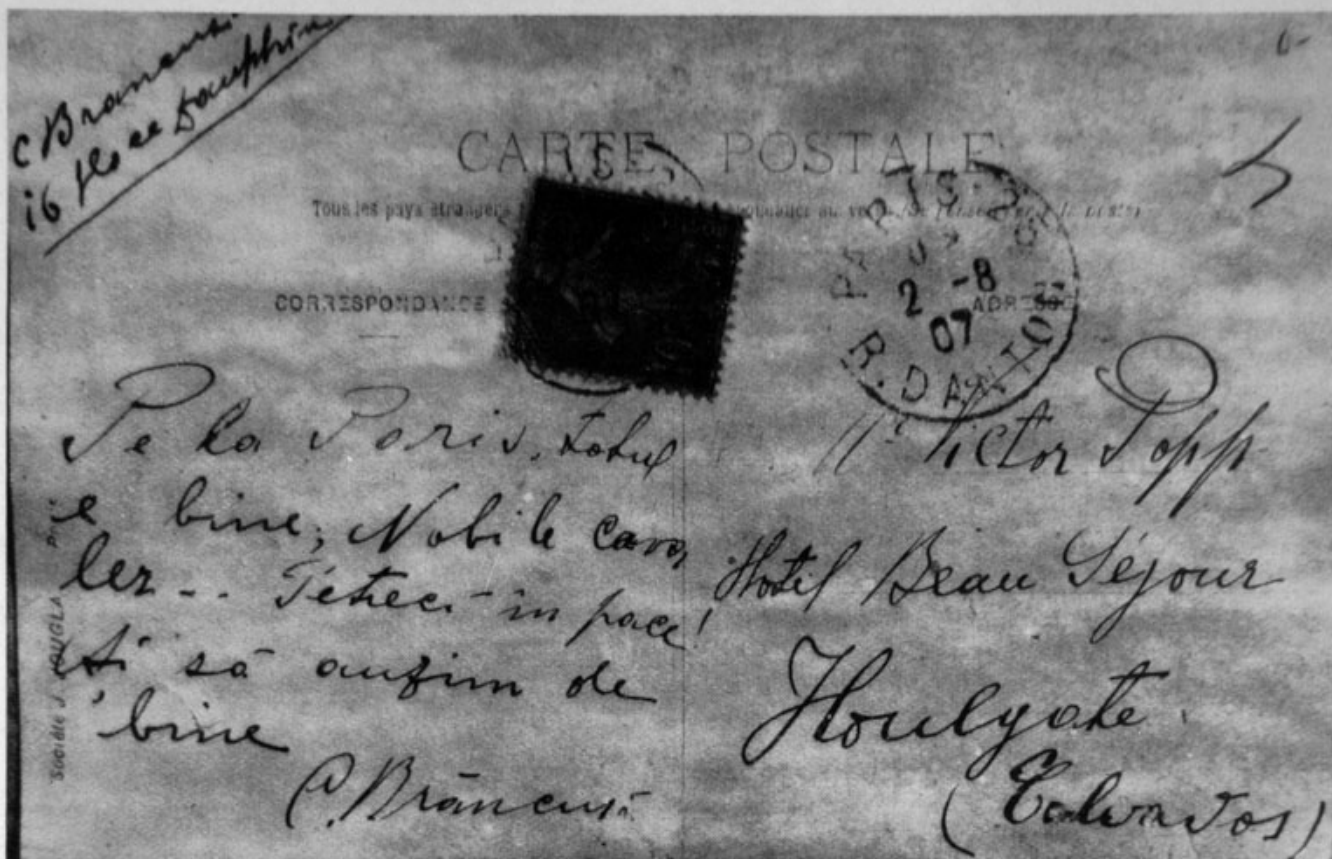 C Brancusi
16 place Dauphine
CARTE POSTALE
Tous les pays étrangers
CORRESPONDANCE
ADRESSE
PARIS
2 -8
07
R. DANTON
Pe la Paris, totul
e bine, Nobile cava
ler .. Petreci în pace!
Și să auzim de
bine
C. Brâncuși
Mr Victor Popp
Hotel Beau Séjour
Houlgate
(Calvados)
Société J. JOUGLA